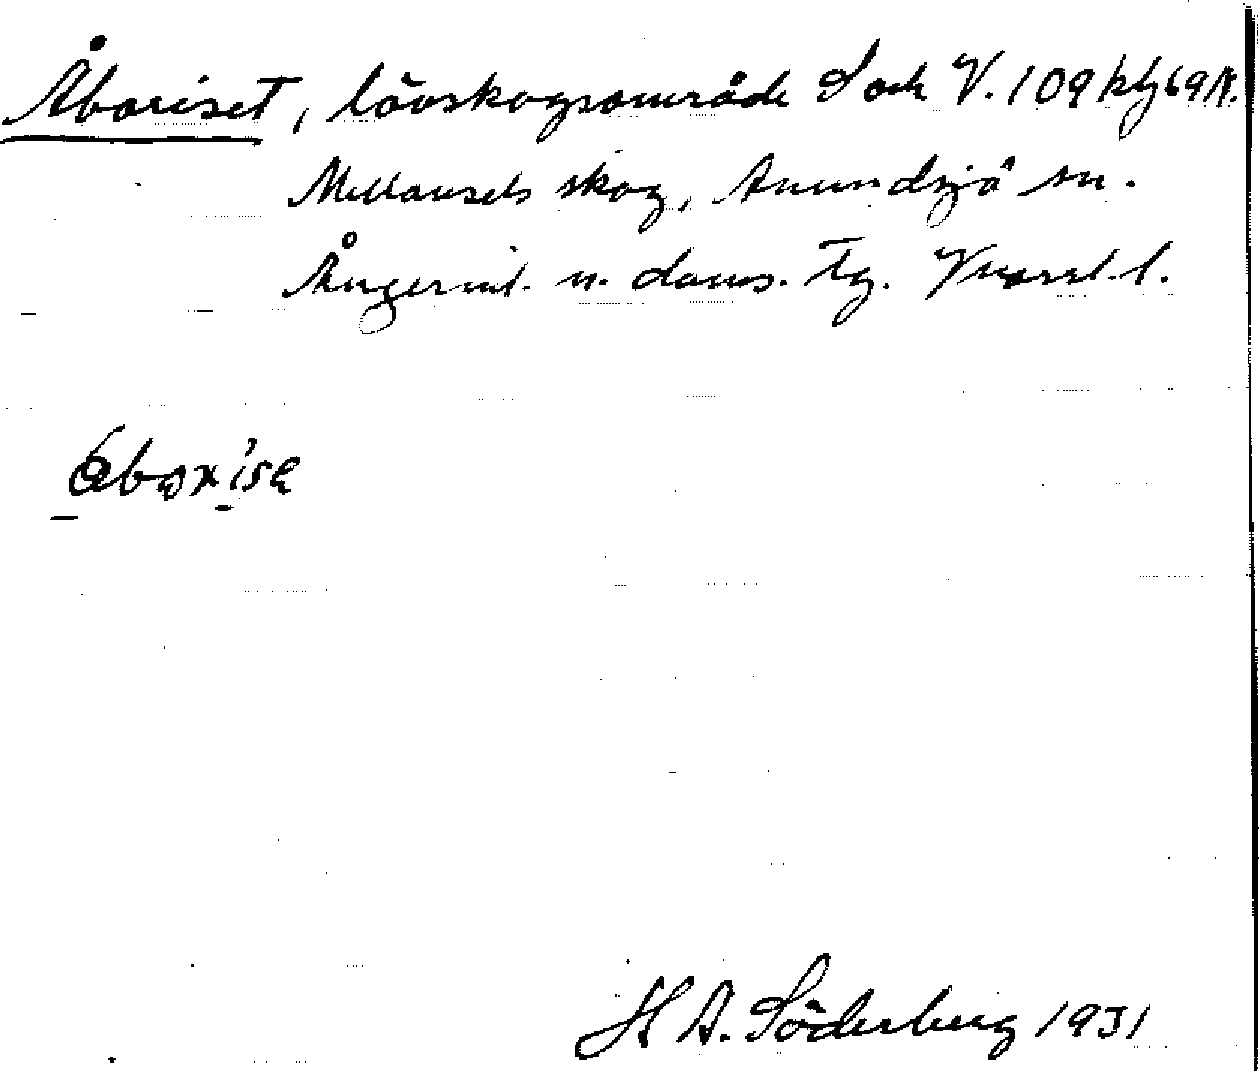 Åboriset, lövskogsområde S och V. 109 klz 69 N.
Mellansels skog, Anundsjö sn.
Ångerml. n. doms. Tg. Vnorrl. l.
H A. Söderberg 1931